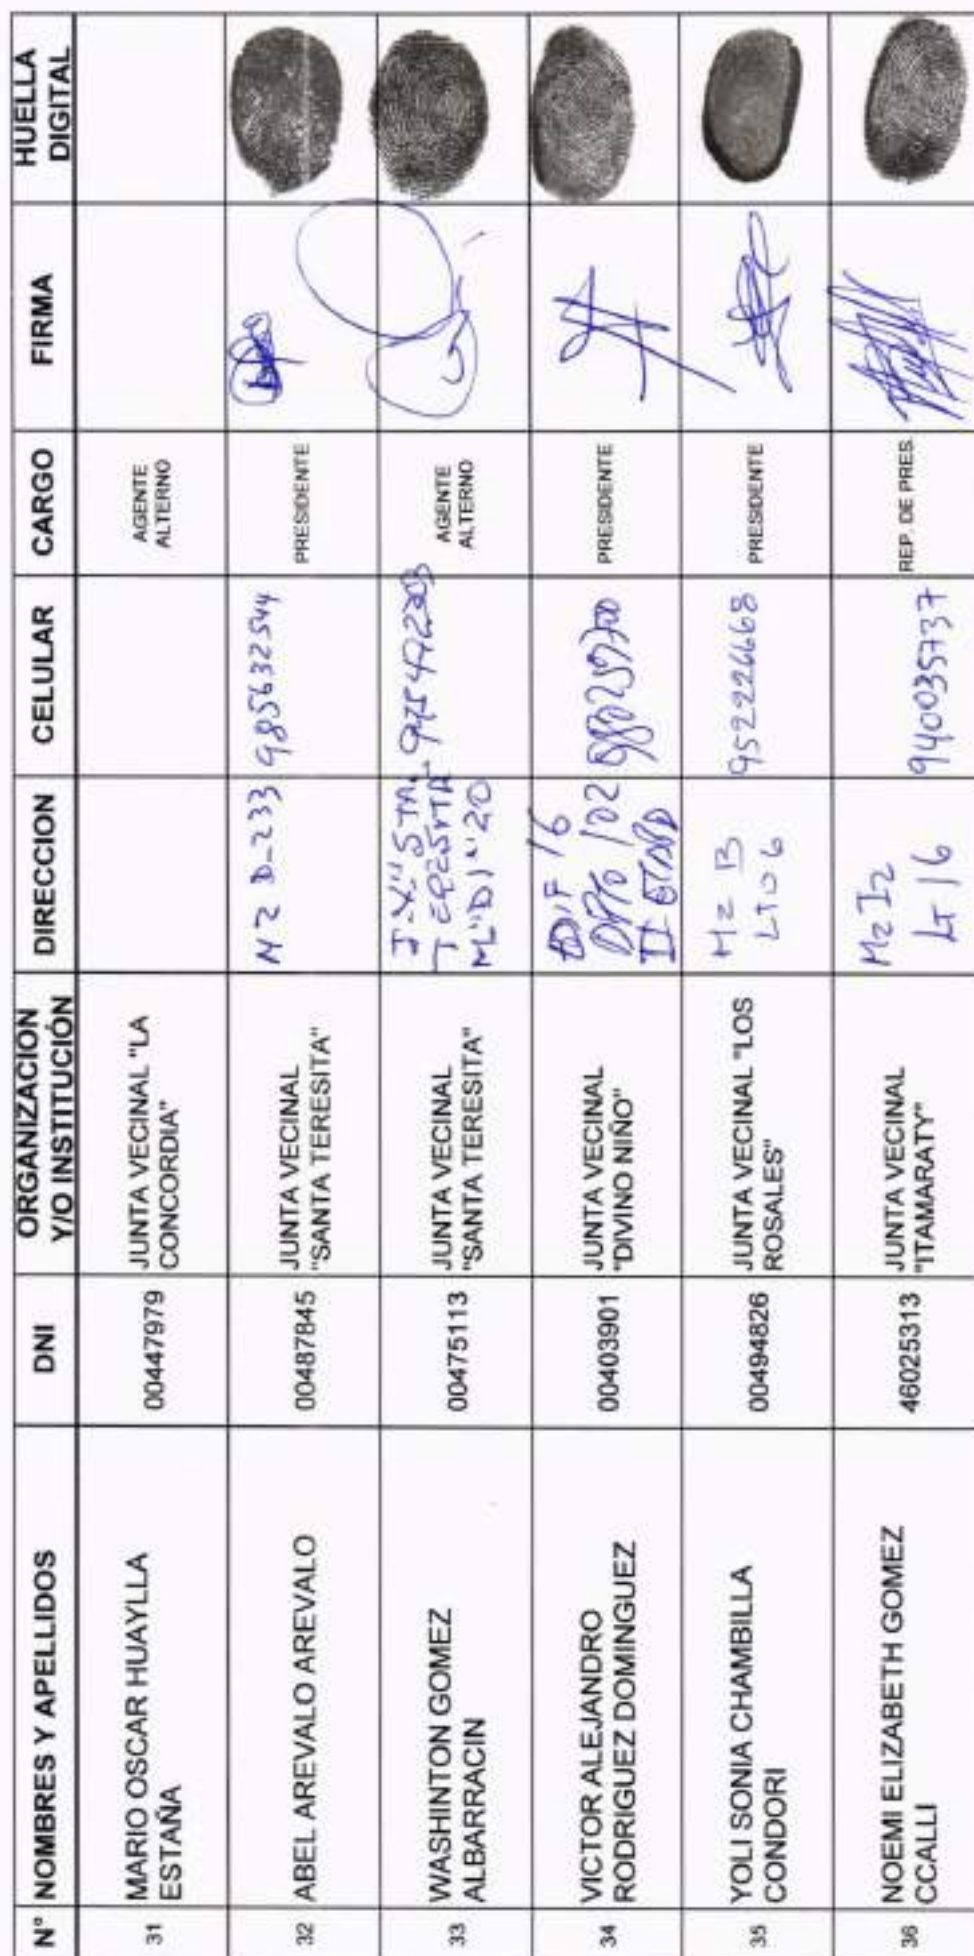 N° NOMBRES Y APELLIDOS DNI ORGANIZACION Y/O INSTITUCIÓN DIRECCION CELULAR CARGO FIRMA HUELLA DIGITAL
31 MARIO OSCAR HUAYLLA ESTAÑA 00447979 JUNTA VECINAL "LA CONCORDIA" AGENTE ALTERNO
32 ABEL AREVALO AREVALO 00487845 JUNTA VECINAL "SANTA TERESITA" MZ D-233 985632544 PRESIDENTE
33 WASHINTON GOMEZ ALBARRACIN 00475113 JUNTA VECINAL "SANTA TERESITA" AGENTE ALTERNO
34 VICTOR ALEJANDRO RODRIGUEZ DOMINGUEZ 00403901 JUNTA VECINAL "DIVINO NIÑO" EDIF 16 DPTO 102 II ETAPA PRESIDENTE
35 YOLI SONIA CHAMBILLA CONDORI 00494826 JUNTA VECINAL "LOS ROSALES" Mz B LT06 952226668 PRESIDENTE
36 NOEMI ELIZABETH GOMEZ CCALLI 46025313 JUNTA VECINAL "ITAMARATY" Mz I2 LT 16 940035737 REP. DE PRES.